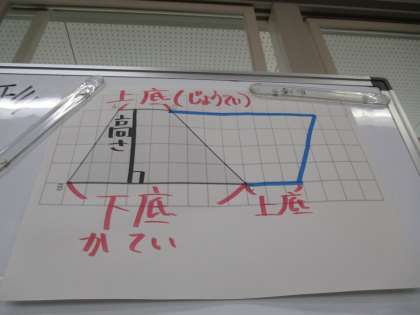 上底(じょうてい)
高さ
下底
かてい
上底